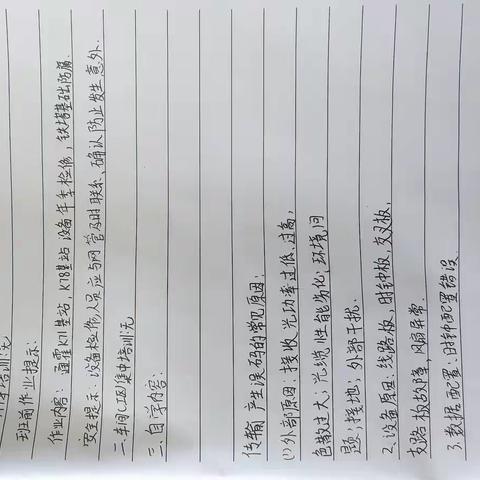 培训:无
班前作业提示:
作业内容: 通霍K11基站, K78基站 设备年季检修, 铁塔基础防腐.
安全提示: 设备检修人员应与网管及时联系、确认防止发生意外.
二、车间(工区)集中培训:无
三、自学内容:
传输产生误码的常见原因:
(1)外部原因: 接收光功率过低、过高,
色散过大; 光缆性能劣化; 环境问
题; 接地; 外部干扰.
2、设备原因: 线路板, 时钟板, 交叉板,
支路板故障, 风扇异常.
3、数据配置: 时钟配置错误.